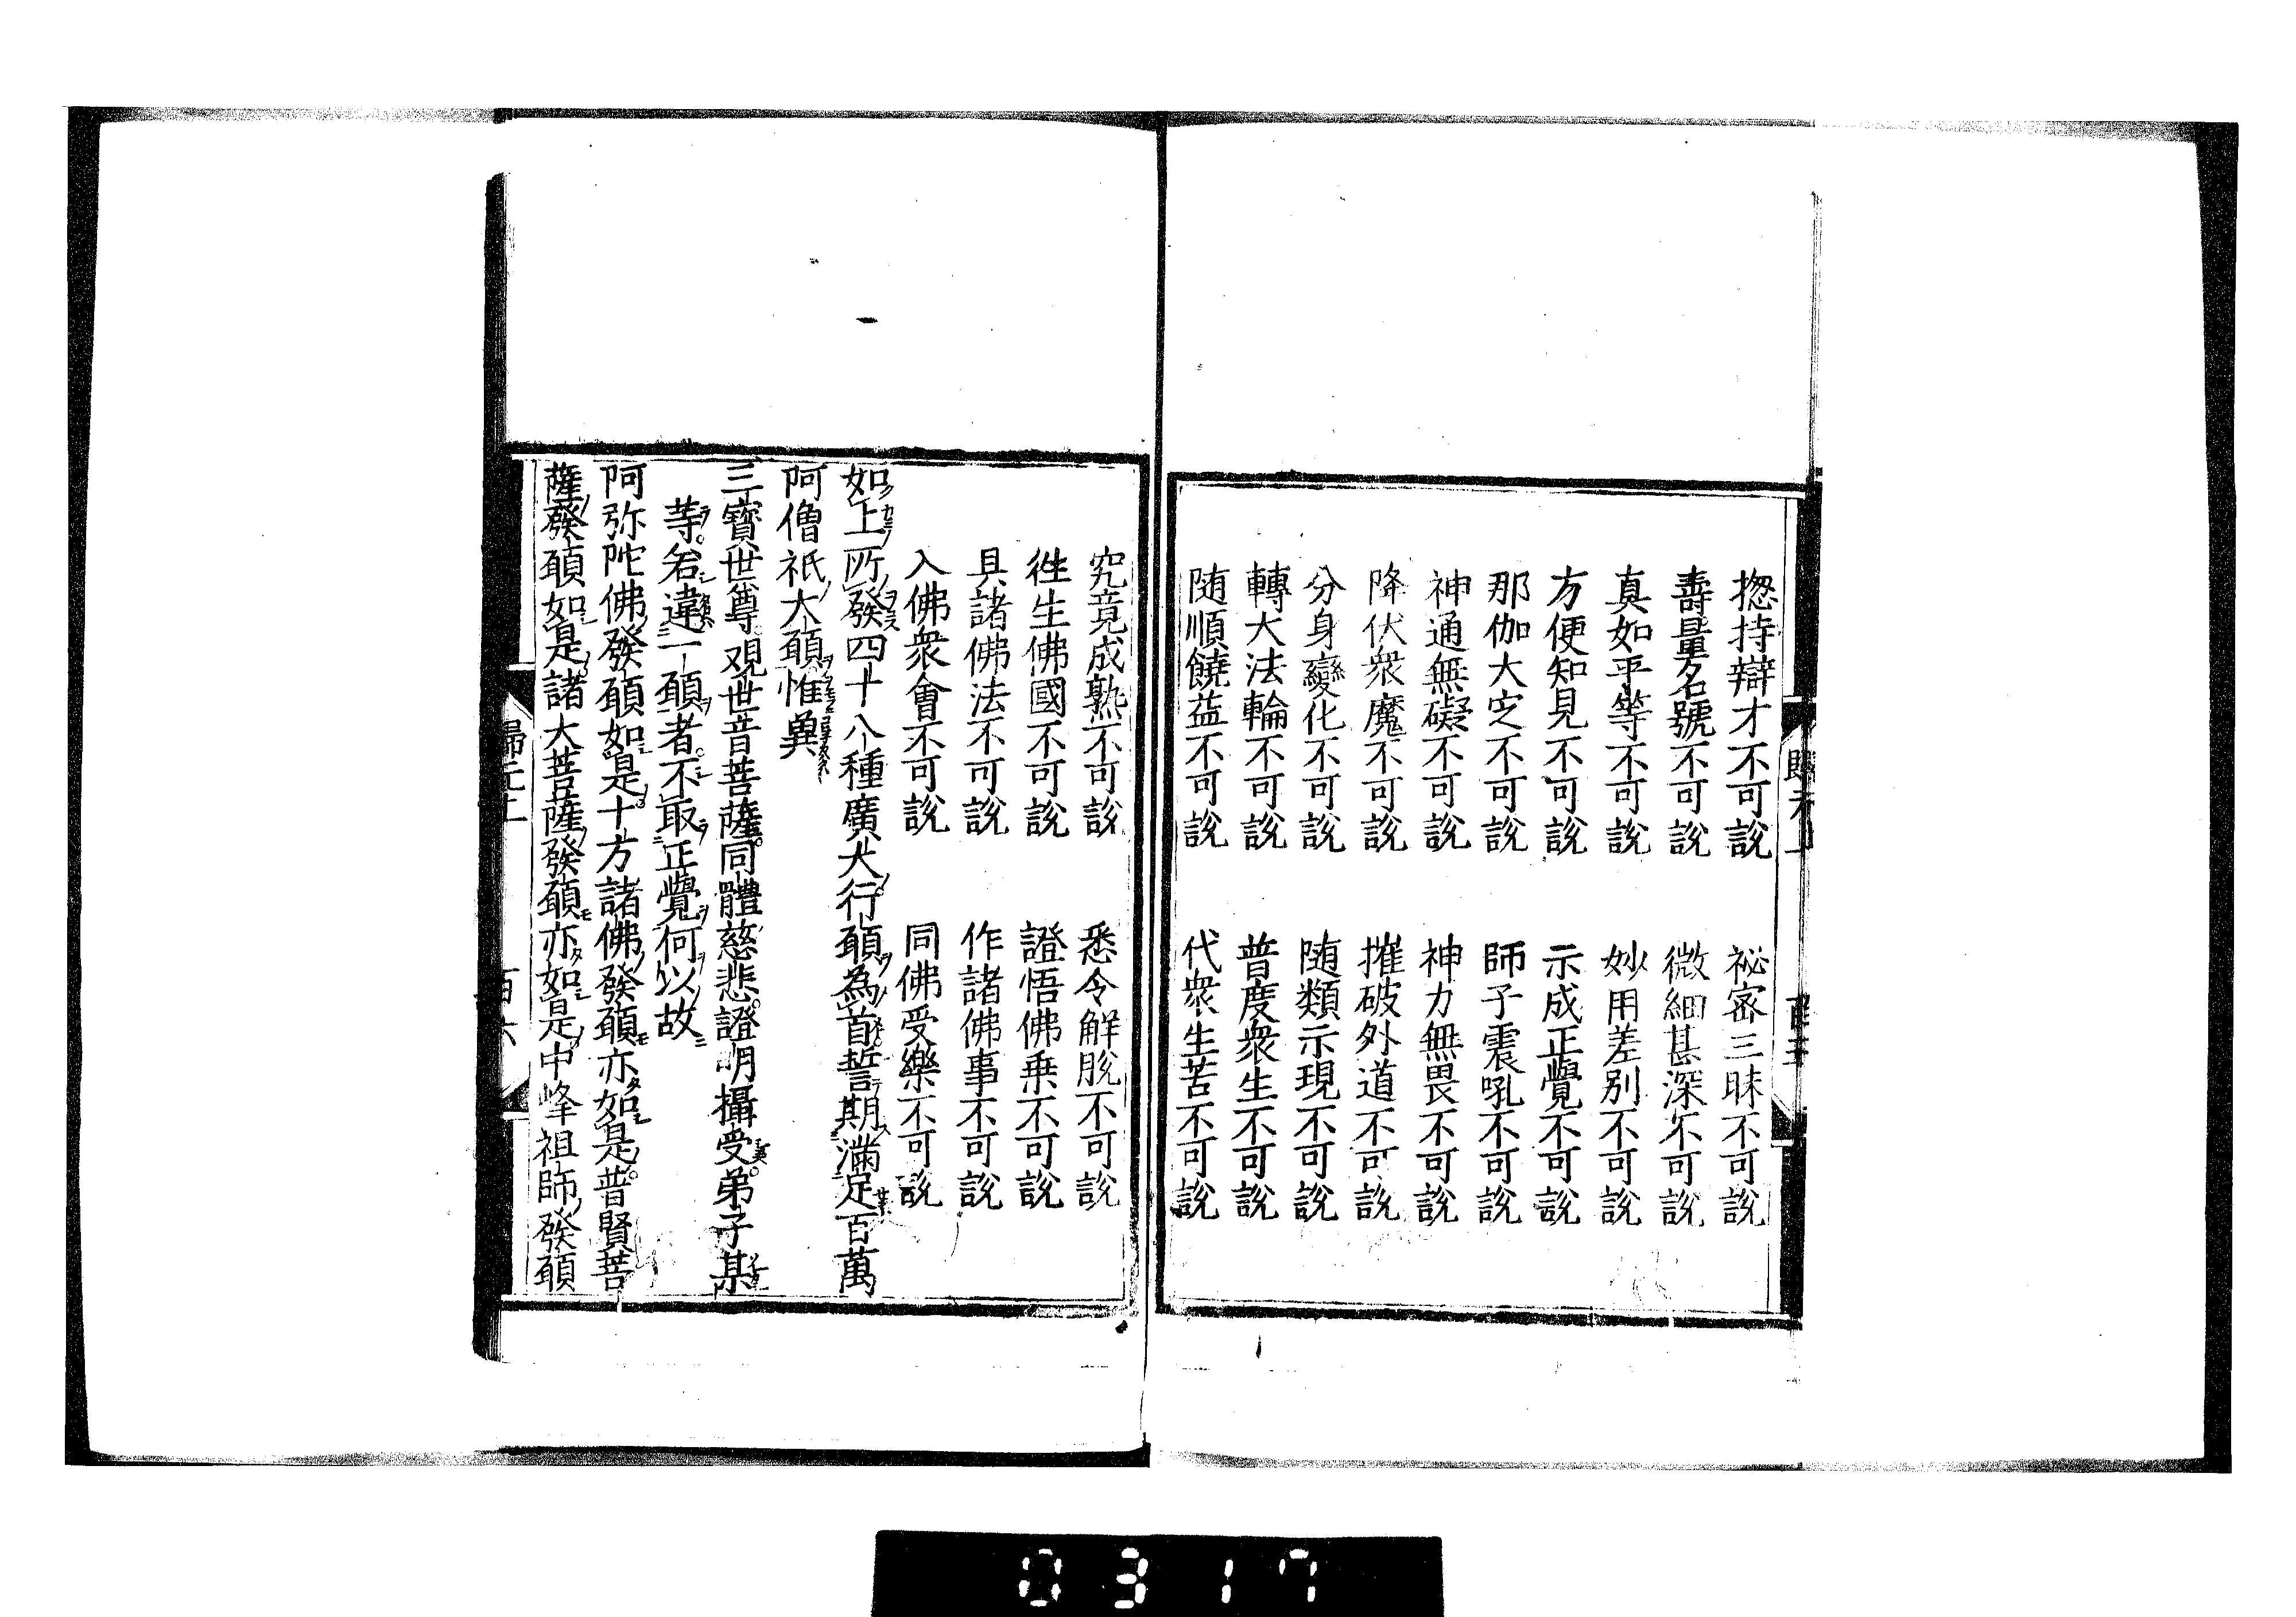 揔持辯才不可說　祕宻三昧不可說
壽量名號不可說　微細甚深不可說
真如平等不可說　妙用差別不可說
方便知見不可說　示成正覺不可說
那伽大㝎不可說　師子震吼不可說
神通無礙不可說　神力無畏不可說
降伏衆魔不可說　摧破外道不可說
分身變化不可說　随類示現不可說
轉大法輪不可說　普度衆生不可說
随順饒益不可說　代衆生苦不可說
究竟成熟不可說　悉令解脫不可說
徃生佛國不可說　證悟佛乗不可說
具諸佛法不可說　作諸佛事不可說
入佛衆會不可說　同佛受樂不可說
如上所發四十八種廣大行願為首誓期滿足百萬
阿僧祇大願惟兾
三寳世尊觀世音菩薩同體慈悲證明攝受弟子某
等若違一願者不取正覺何以故
阿弥陀佛發願如是十方諸佛發願亦如是普賢菩
薩發願如是諸大菩薩發願亦如是中峰祖師發願
歸元上
百六
0317